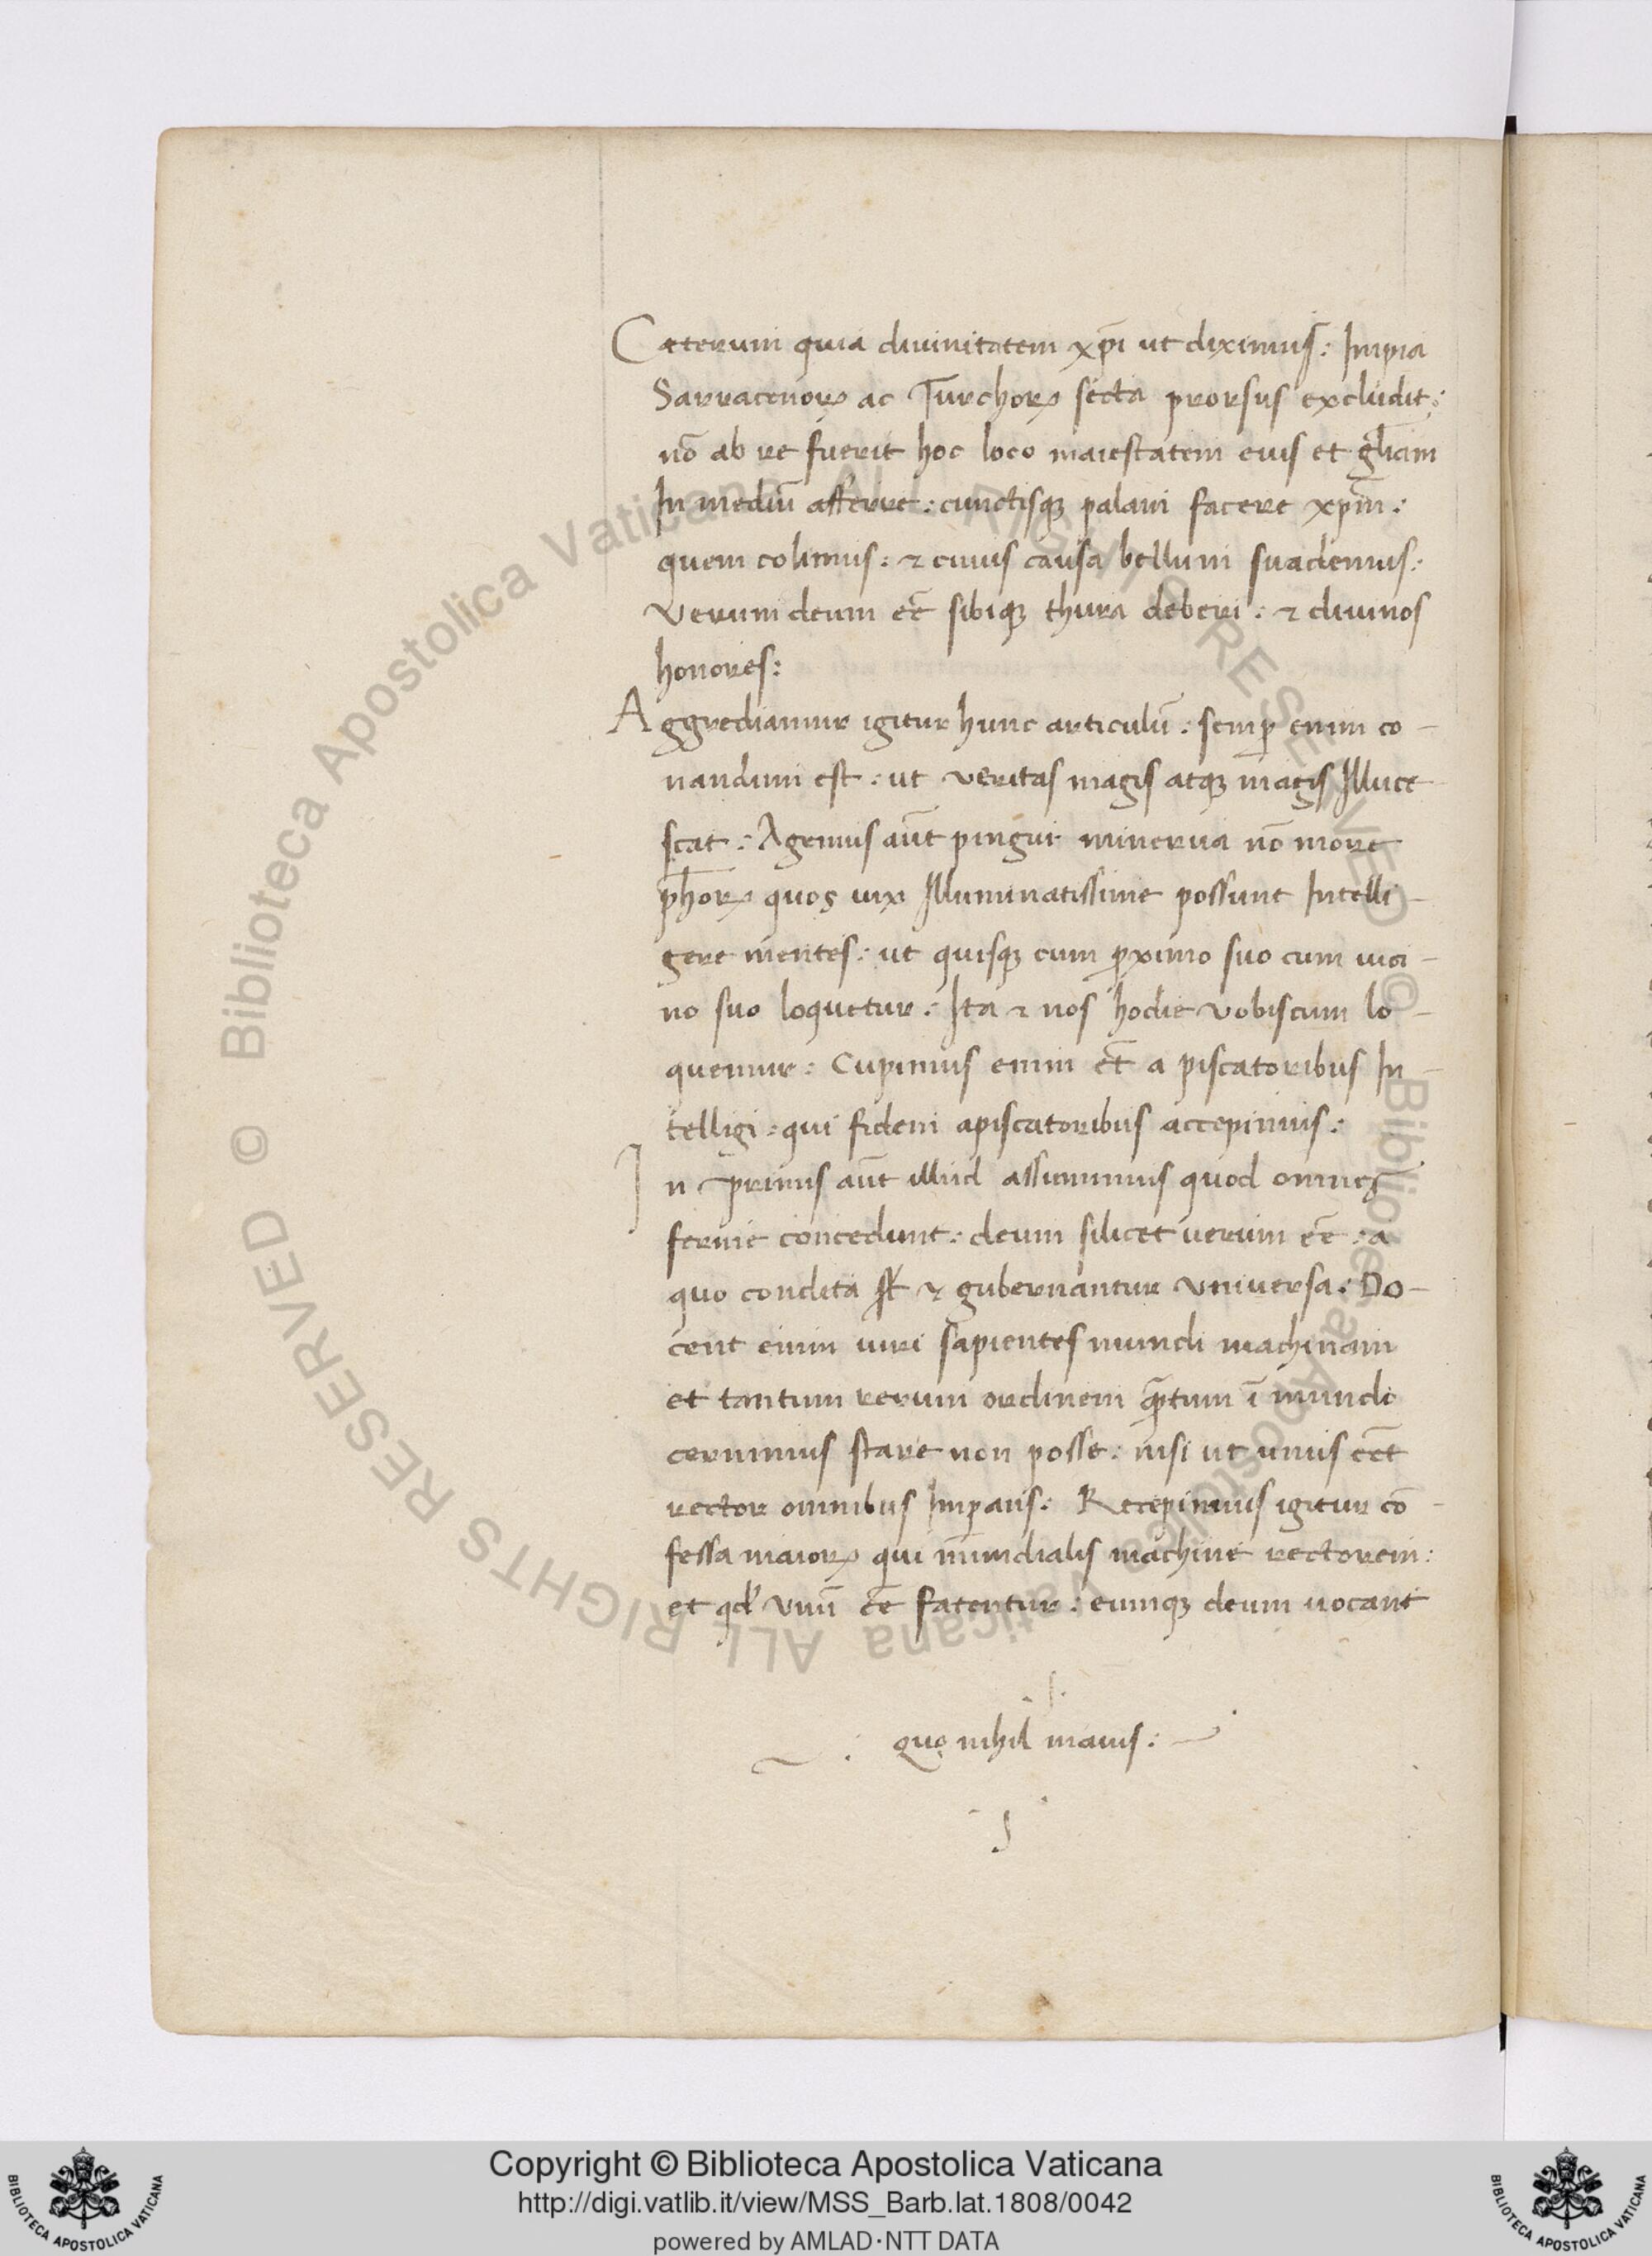 Cæterum quia diuinitatem xp̄i ut diximus: Impia
Sarracenoꝝ ac Turchoꝝ secta prorsus excludit:
nō ab re fuerit hoc loco maiestatem eius et gl̄iam
In mediū afferre: cunctisqꝫ palam facere xp̄m:
quem colimus: ⁊ cuius causa bellum suademus:
Verum deum eē sibiqꝫ thura deberi: ⁊ diuinos
honores:
Aggrediamur igitur hunc articulū: semꝑ enim co-
nandum est: ut veritas magis atqꝫ magis Illuce
scat: Agemus aūt pingui minerua nō more
ph̄oꝝ quos uix Illuminatissime possunt Intelli-
gere mentes: ut quisqꝫ cum ꝓximo suo cum uici-
no suo loquetur: Ita ⁊ nos hodie vobiscum lo-
quemur: Cupimus enim et̄ a piscatoribus In-
telligi: qui fidem apiscatoribus accepimus:
In primis aūt illud assummimus quod omnes
ferme concedunt: deum silicet uerum eē: a
quo condita st̄ ⁊ gubernantur vniuersa: Do-
cent enim uiri sapientes mundi machinam
et tantum rerum ordinem qᷓtum ī mundo
cernimus stare non posse: nisi ut unus eēt
rector omnibus Imꝑans: Recepimus igitur cō-
fessa maioꝝ qui mundialis machine rectorem:
et qd' vnū eē fatentur: eumqꝫ deum uocant
quo nihil maius:
Copyright © Biblioteca Apostolica Vaticana
http://digi.vatlib.it/view/MSS_Barb.lat.1808/0042
powered by AMLAD·NTT DATA
BIBLIOTECA APOSTOLICA VATICANA
BIBLIOTECA APOSTOLICA VATICANA
© Biblioteca Apostolica Vaticana ALL RIGHTS RESERVED © Biblioteca Apostolica Vaticana ALL RIGHTS RESERVED